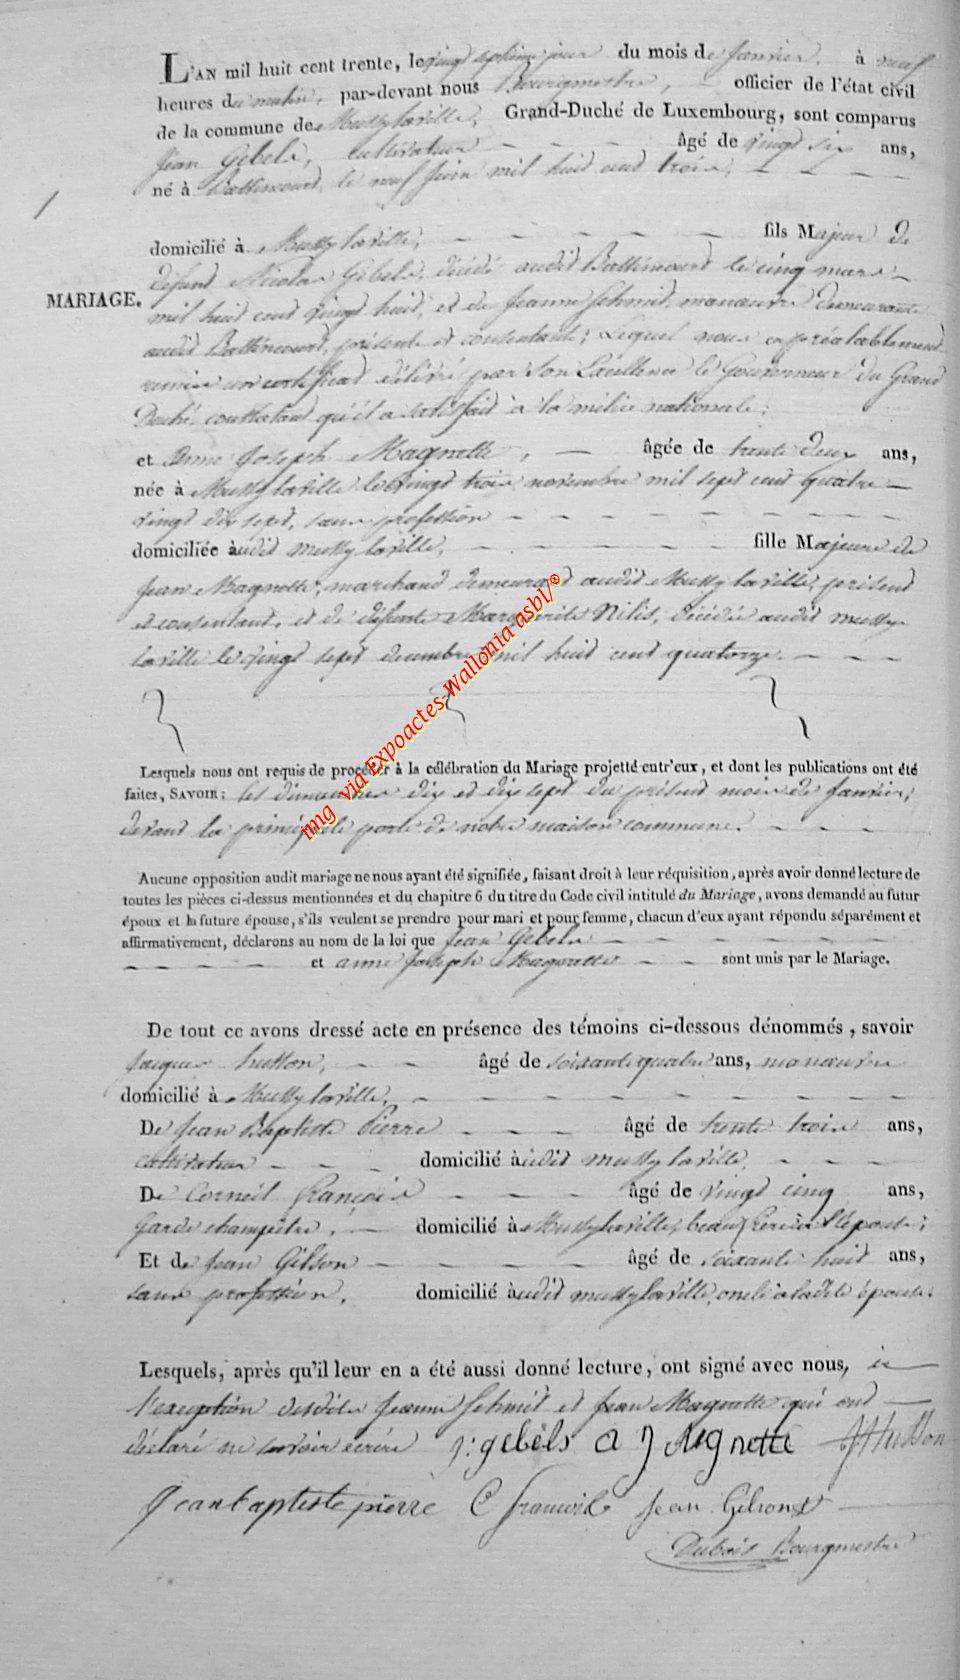 L'AN mil huit cent trente, le vingt septième jour du mois de Janvier, à neuf
heures du matin, par-devant nous Bourgmestre, officier de l'état civil
de la commune de Mussy laville, Grand-Duché de Luxembourg, sont comparus
Jean Gebels, cultivateur âgé de vingt six ans,
né à Battincourt, le neuf Juin mil huit cent trois,
domicilié à Mussy laville, fils Majeur de
défunt Nicolas Gebels, décédé audit Battincourt le cinq mars
MARIAGE.
mil huit cent vingt huit, et de Jeanne Schmit, manœuvre demeurante
audit Battincourt, présente et consentante; Lequel nous a préalablement
remis un certificat délivré par Son Excellence le Gouverneur du Grand
Duché, constatant qu'il a satisfait à la milice nationale;
et Anne Joseph Magnette, âgée de trente deux ans,
née à Mussy laville le vingt trois novembre mil sept cent quatre
vingt dix sept, sans profession
domiciliée audit Mussy laville, fille Majeure de
Jean Magnette, marchand demeurant audit Mussy laville, présent
et consentant, et de défunte Marguerite Nilis, décédée audit Mussy
laville le vingt sept décembre mil huit cent quatorze.
img via Expoactes-Wallonia asbl/©
Lesquels nous ont requis de procéder à la célébration du Mariage projetté entr'eux, et dont les publications ont été
faites, SAVOIR: les dimanches dix et dix sept du présent mois de Janvier,
devant la principale porte de notre maison commune.
Aucune opposition audit mariage ne nous ayant été signifiée, faisant droit à leur réquisition, après avoir donné lecture de
toutes les pièces ci-dessus mentionnées et du chapitre 6 du titre du Code civil intitulé du Mariage, avons demandé au futur
époux et la future épouse, s'ils veulent se prendre pour mari et pour femme, chacun d'eux ayant répondu séparément et
affirmativement, déclarons au nom de la loi que Jean Gebels
et anne Joseph Magnette sont unis par le Mariage.
De tout ce avons dressé acte en présence des témoins ci-dessous dénommés, savoir
Jacques husson, âgé de soixante quatre ans, manœuvre
domicilié à Mussy laville,
De Jean Baptiste Pierre âgé de trente trois ans,
cultivateur domicilié audit mussy laville,
De Corneil François âgé de vingt cinq ans,
Garde champêtre, domicilié à Mussy laville, beau frère à l'épouse;
Et de Jean Gilson âgé de soixante huit ans,
sans profession, domicilié audit mussy laville, oncle à ladite épouse.
Lesquels, après qu'il leur en a été aussi donné lecture, ont signé avec nous, à
l'exception desdits Jeanne Schmit et Jean Magnette qui ont
déclaré ne savoir écrire j: gebels a J Magnette JHusson
Jean baptiste pierre C françois Jean Gilson
Dubois Bourgmestre